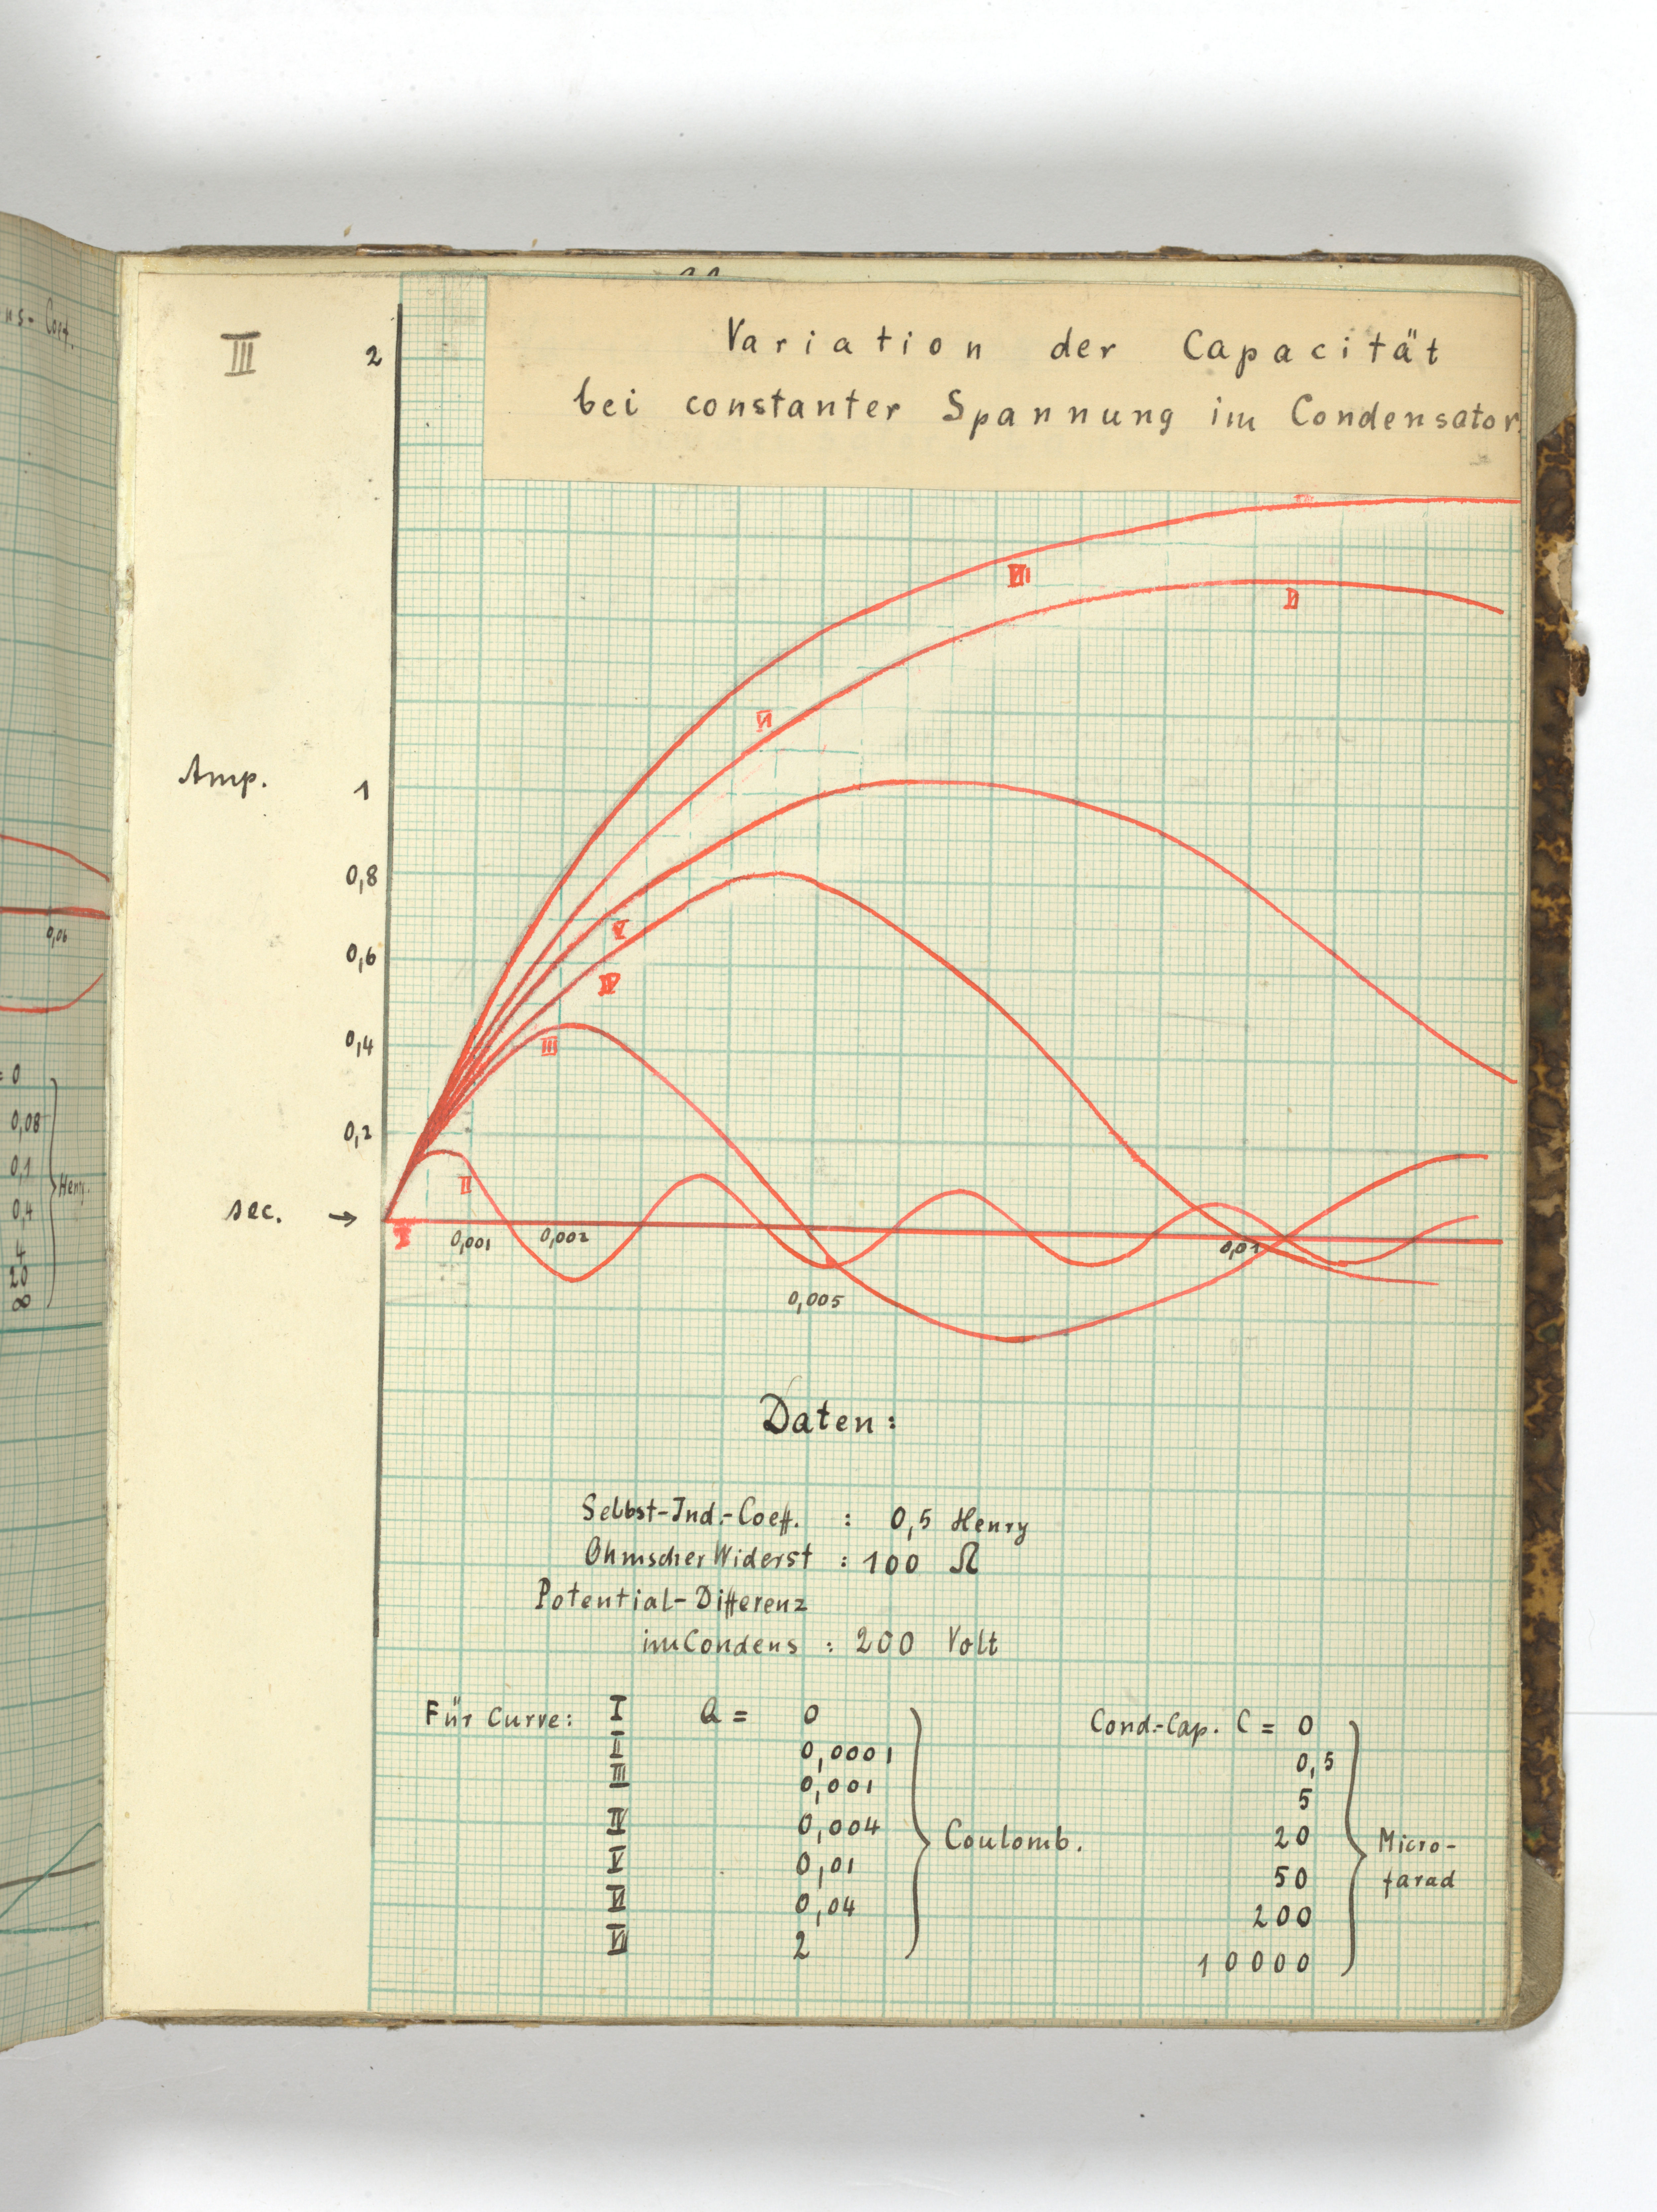 ns-Coef.
III
2
Variation der Capacität
bei constanter Spannung im Condensator.
VII
VI
Amp.
1
VI
0,8
V
0,6
IV
0,06
0,4
III
0,2
II
sec. →
I
0,001
0,002
0,01
0,005
= 0
0,08
0,1
0,4
4
20
∞
Henry.
Daten:
Selbst-Ind.-Coeff. : 0,5 Henry
Ohmscher Widerst : 100 Ω
Potential-Differenz
im Condens : 200 Volt
Für Curve: I Q = 0 Cond.-Cap. C = 0
II 0,0001 0,5
III 0,001 5
IV 0,004 20
Coulomb. Micro-
V 0,01 50 farad
VI 0,04 200
VII 2 10000